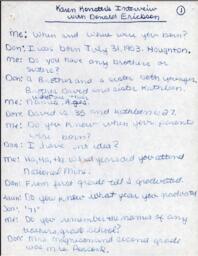 Karen Konattu's Interview
with Donald Erickson
1
Me: When and where were you born?
Don: I was born July 31, 1953. Houghton.
Me: Do you have any brothers or
sisters?
Don: A Brother and a sister both younger,
Brother David and sister Kathleen.
Me: Names, Ages.
Don: David is 35 and Kathleen 27.
Me: Do you know when your parents
were born?
Don: I have no idea?
Me: Ha, Ha, Ha what years did you attend
National Mine?
Don: From first grade till I graduated.
Do you know what year you graduated
Don: "71"
Me: Do you remember the names of any
teachers, grade school?
Don: Mrs. and second grade
was Mrs.